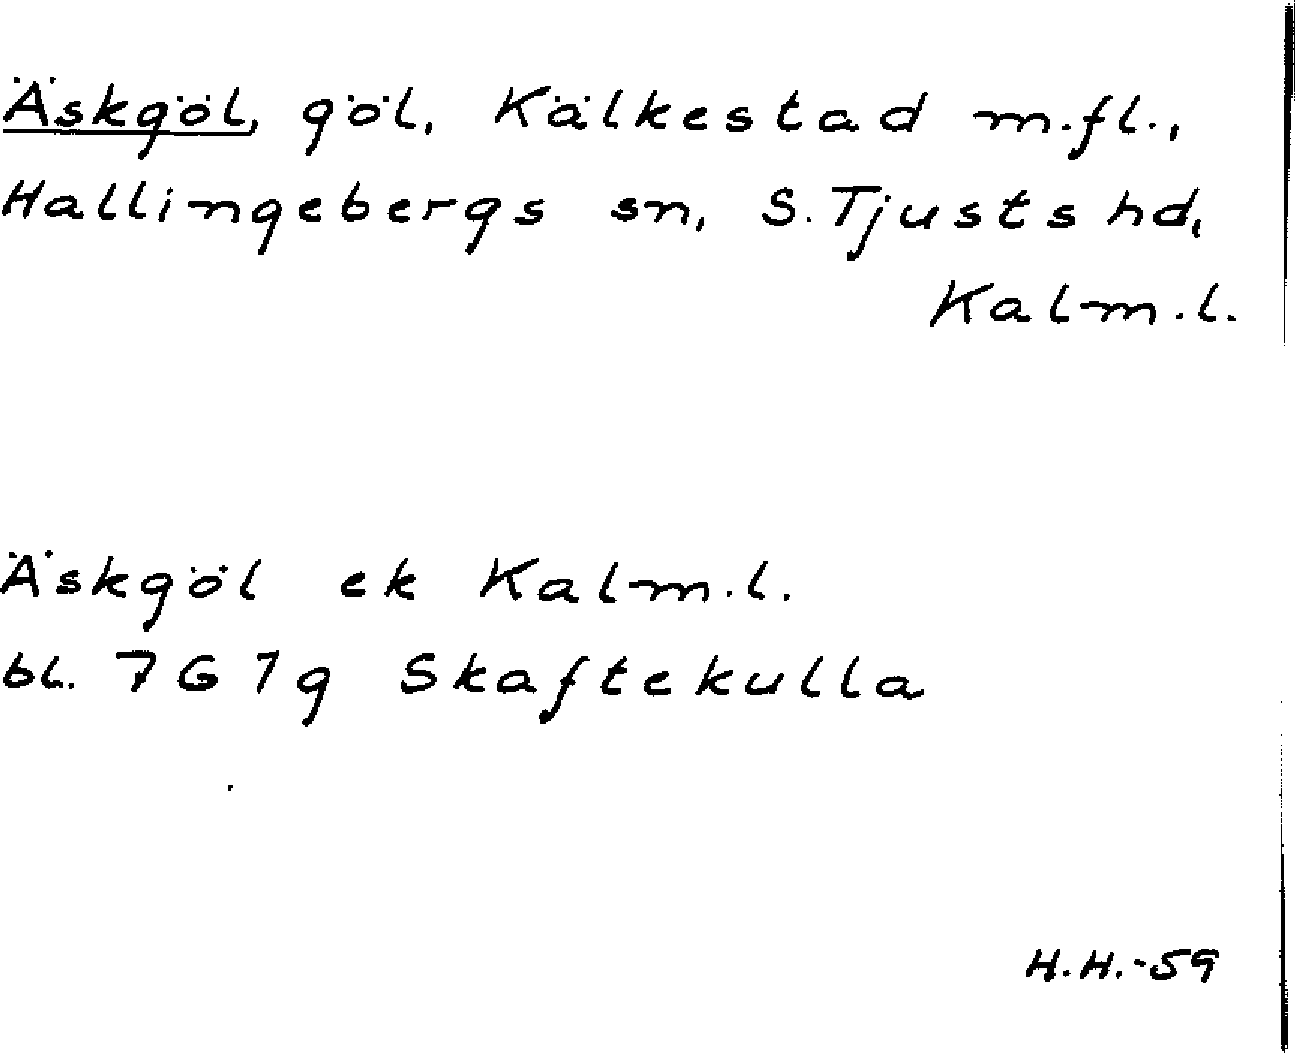 Äskgöl, göl, Kälkestad m.fl.,
Hallingebergs sn, S. Tjusts hd,
Kalm.l.
Äskgöl ek Kalm.l.
bl. 7G7g Skaftekulla
H.H.-59